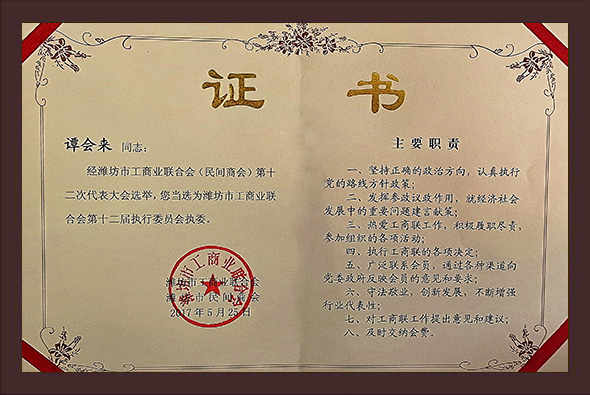 证书
谭会来 同志:
经潍坊市工商业联合会（民间商会）第十
二次代表大会选举，您当选为潍坊市工商业联
合会第十二届执行委员会执委。
潍坊市工商业联合会
潍坊市民间商会
2017年5月25日
潍坊市工商业联合会
主要职责
一、坚持正确的政治方向，认真执行
党的路线方针政策；
二、发挥参政议政作用，就经济社会
发展中的重要问题建言献策；
三、热爱工商联工作，积极履职尽责，
参加组织的各项活动；
四、执行工商联的各项决定；
五、广泛联系会员，通过各种渠道向
党委政府反映会员的意见和要求；
六、守法敬业，创新发展，不断增强
行业代表性；
七、对工商联工作提出意见和建议；
八、及时交纳会费。